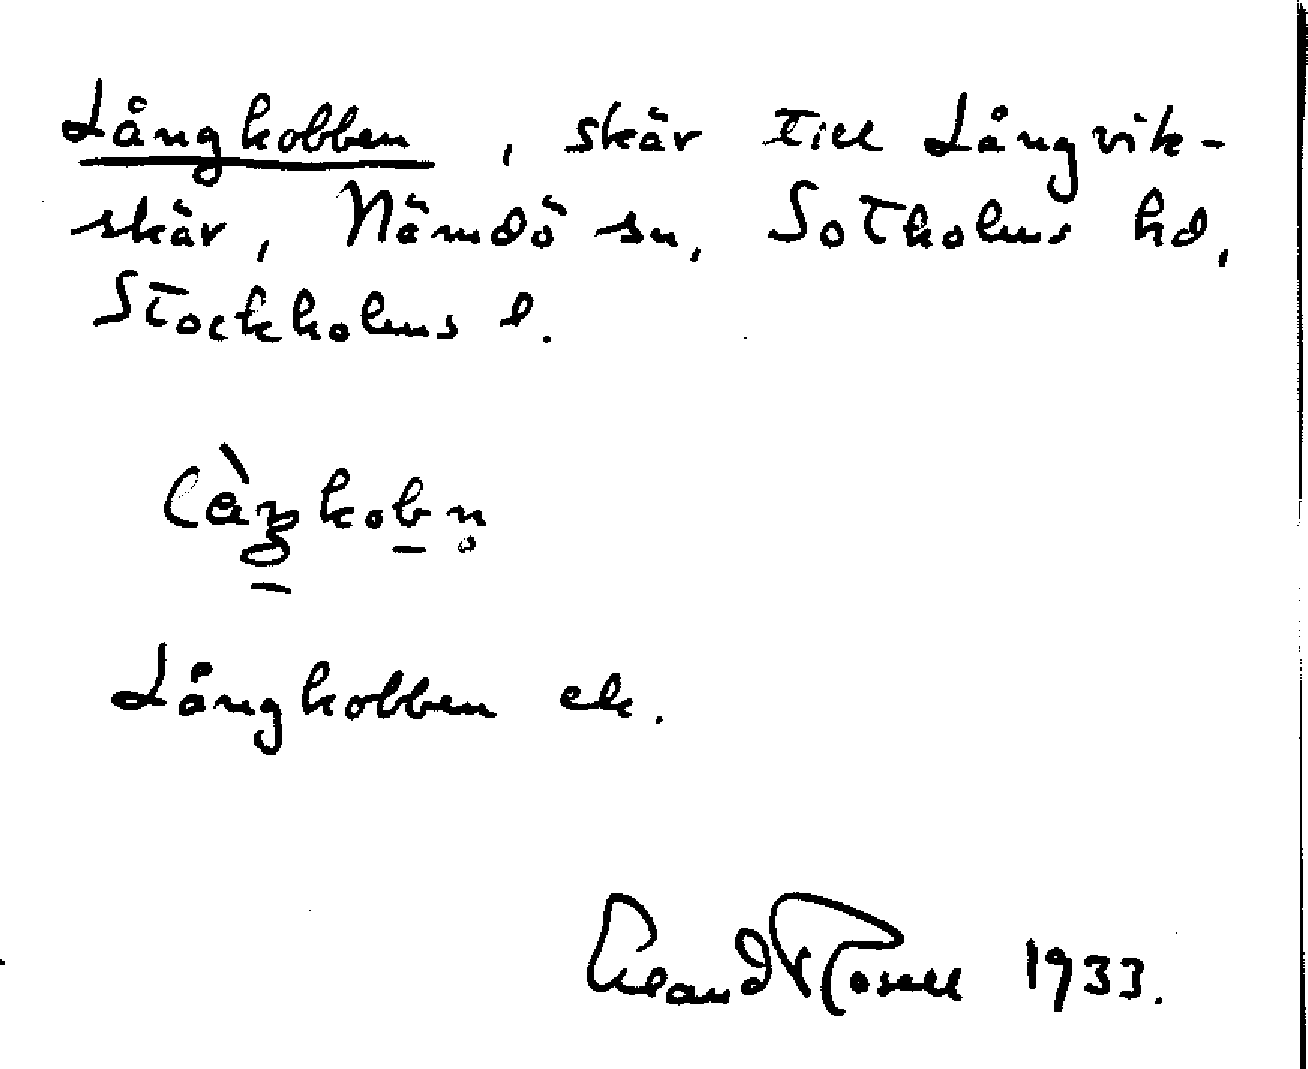 Långkobben, skär till Långvik-
skär, Nämdö sn, Sotholms hd,
Stockholms l.
Långkobben ek.
Erland Rosell 1933.